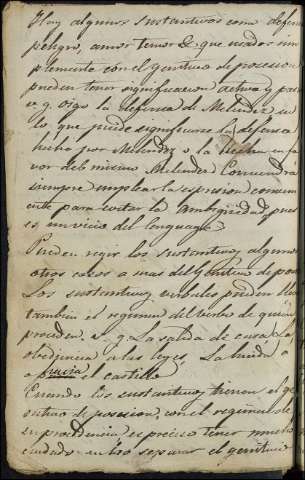 Hay algunos sustantivos como defensa
peligro, amor temor &. que usados sim
plemente con el genitivo de posesion
pueden tener significacion activa y pas
v. g. oigo la defensa de Melendez se
lo, que puede significarse la defensa
hecha por Melendez o la hecha en fa
vor del mismo Melendez Convendra
siempre emplear la espresion conveni
ente para evitar la ambigüedad, pues
es un vicio del lenguage
Pueden regir los sustantivos, algunos
otros casos a mas del genitivo de pos
Los sustantivos verbales pueden
tambien el regimen del verbo de quien
proceden. v. g. La salida de casa, La
obediencia a las leyes, La huida
a el castillo
Cuando los sustantivos tienen el ge
nitivo de posesion, con el regimen de
su procedencia es preciso tener mucho
cuidado en no separar el genitivo